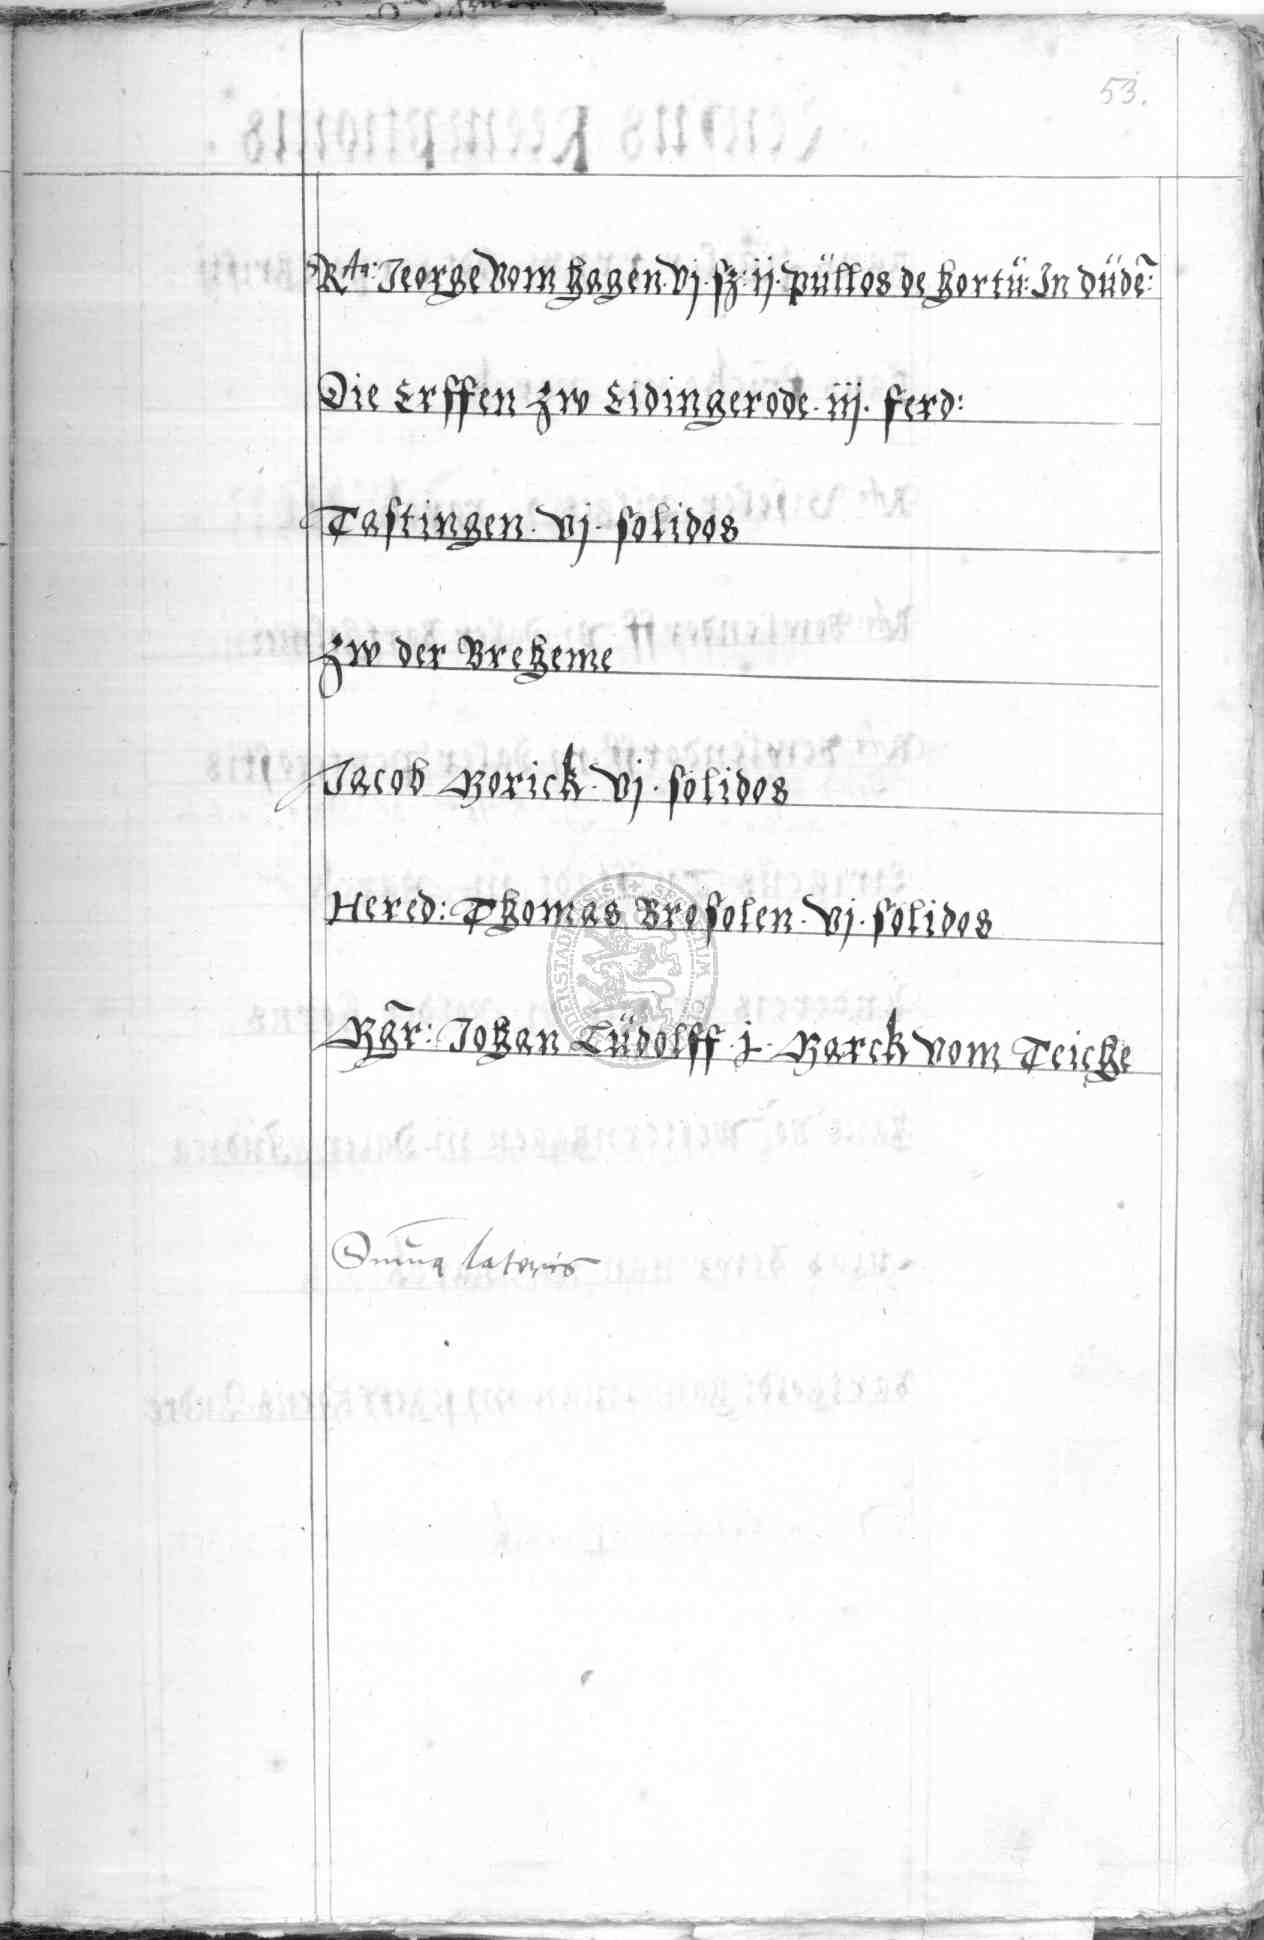 53.
Rta: Jeorge vom Hagen. vj. sz. ij. püllos de hortü: In düdē:
Die Erffen zw Eidingerode. iij. ferd:
Tastingen. vj. solidos
zw der Breheme
Jacob Borick. vj. solidos
Hered: Thomas Brosolen. vj. solidos
Johan Lüdolff. j. Marck vom Teiche
Suma lateris